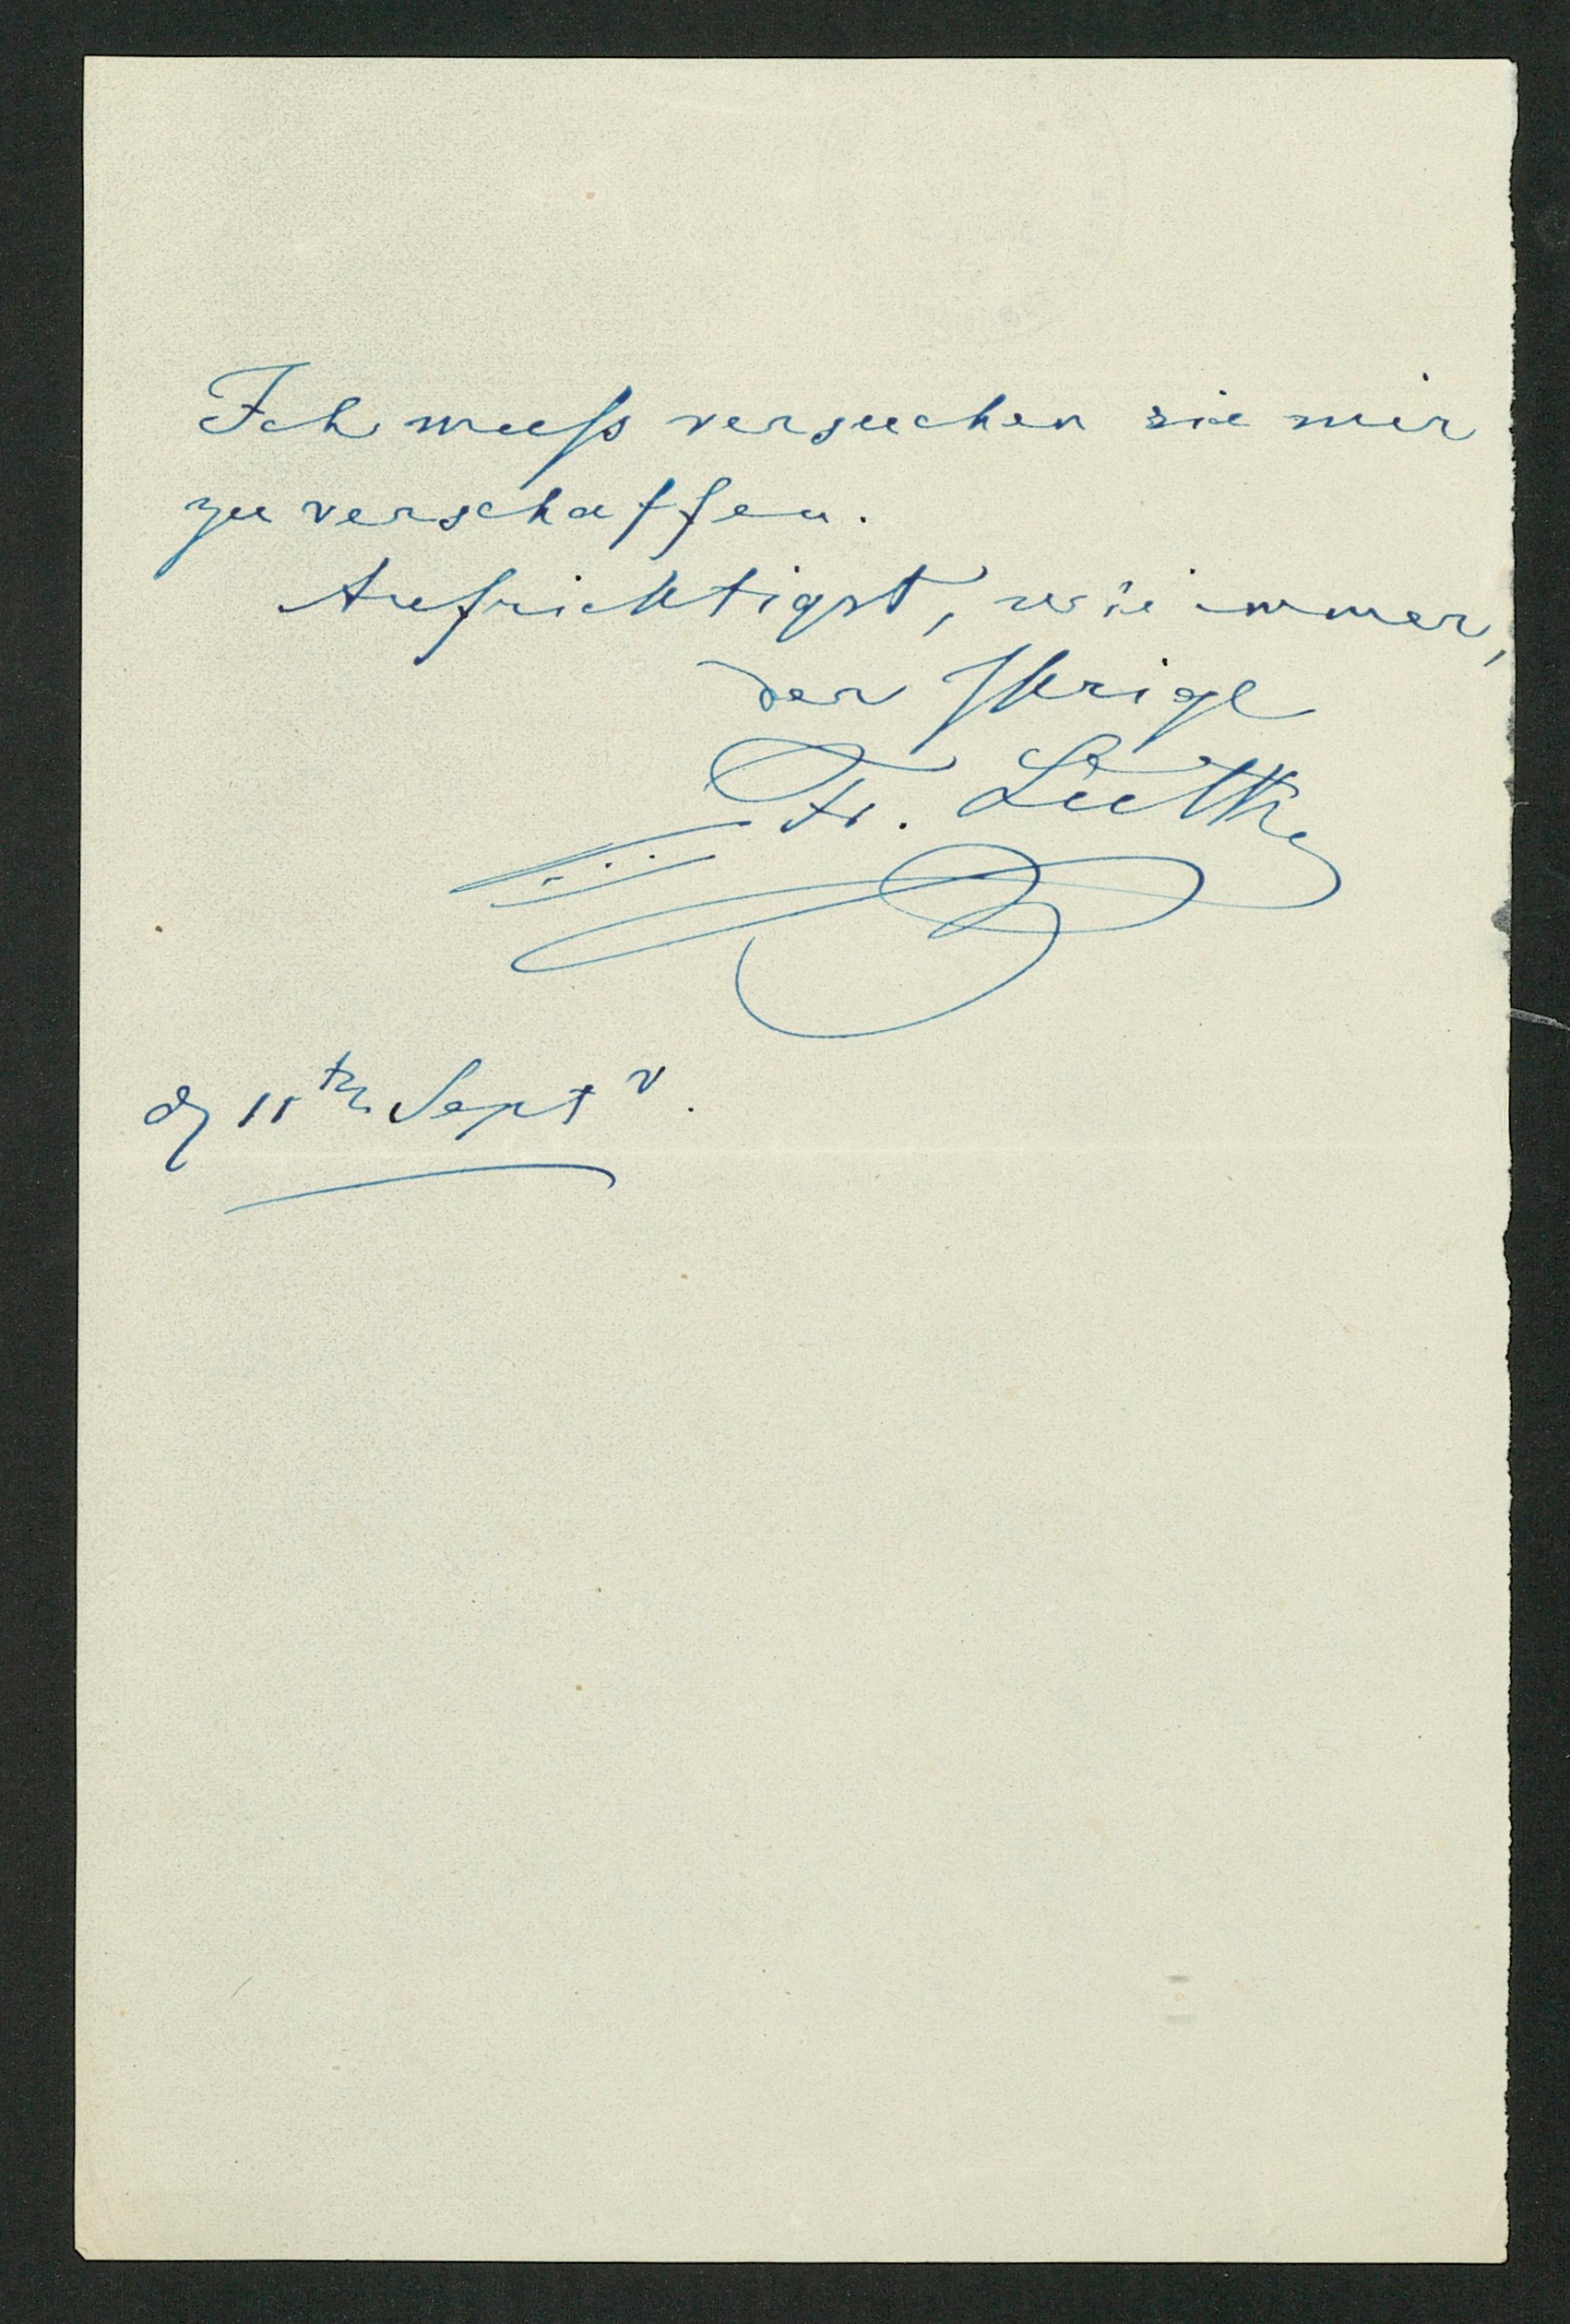 Ich muß versuchen sie mir
zu verschaffen.
Aufrichtigst, wie immer,
der Ihrige
Fr. Lüthy
d. 11ten Septr.